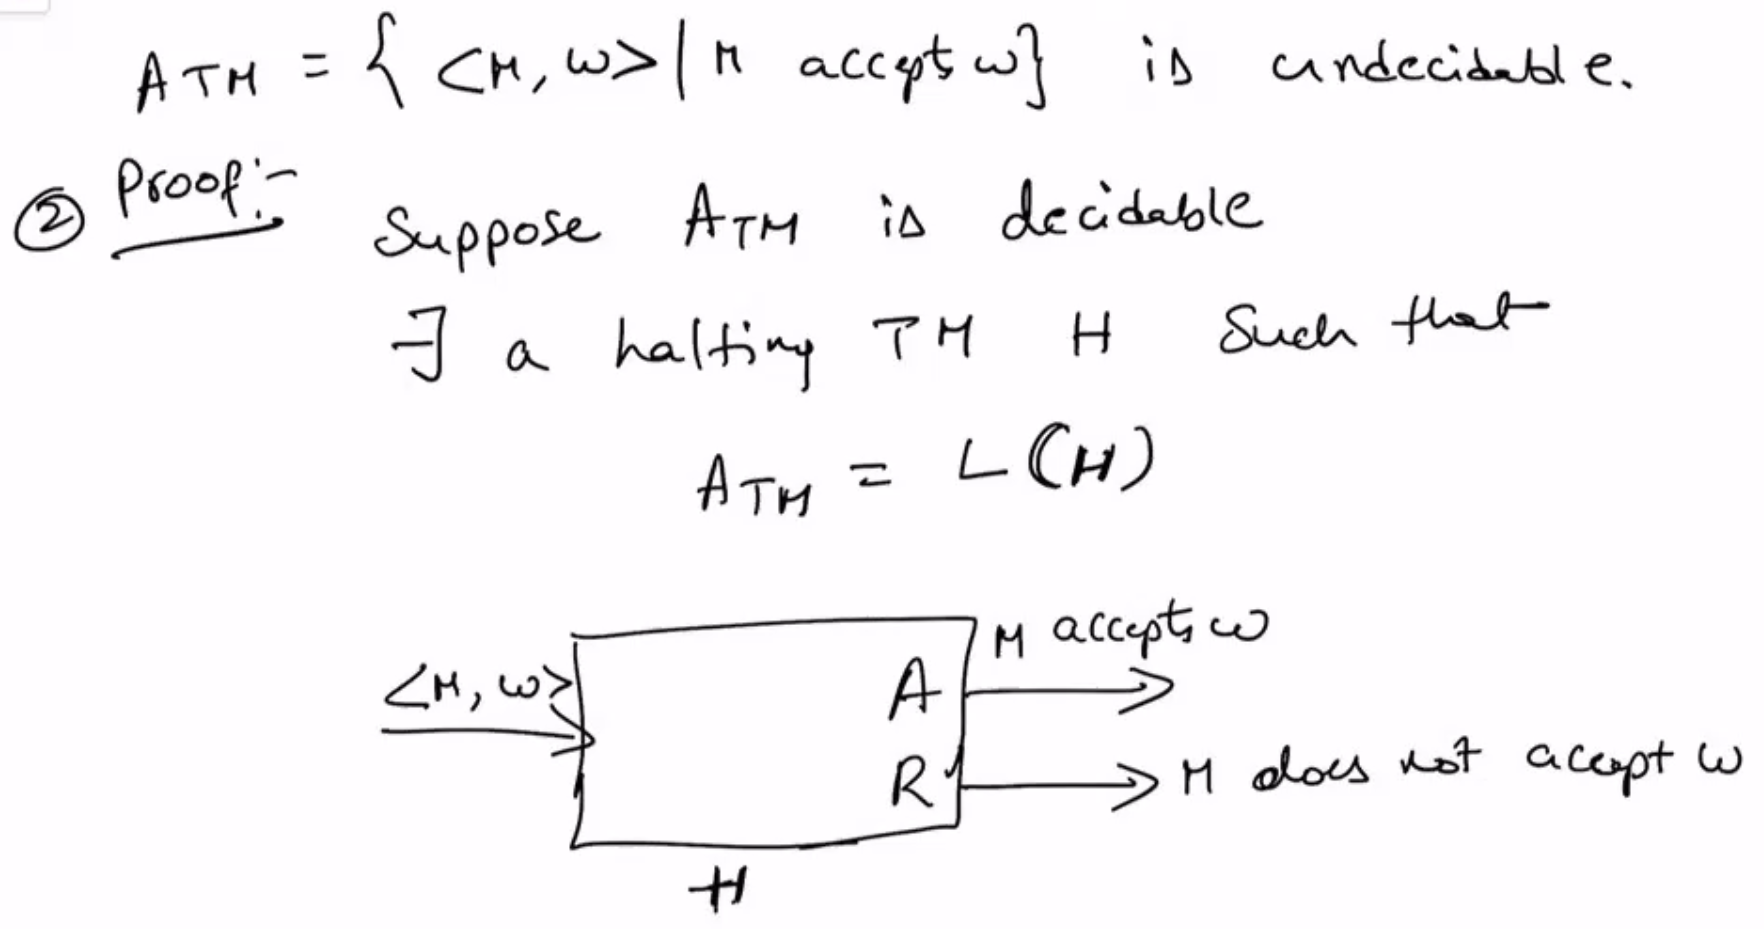 A_TM = { <M, w> | M accepts w} is undecidable.
② Proof:-
Suppose A_TM is decidable
∃ a halting TM H such that
A_TM = L(H)
M accepts w
<M, w>
A
R
M does not accept w
H